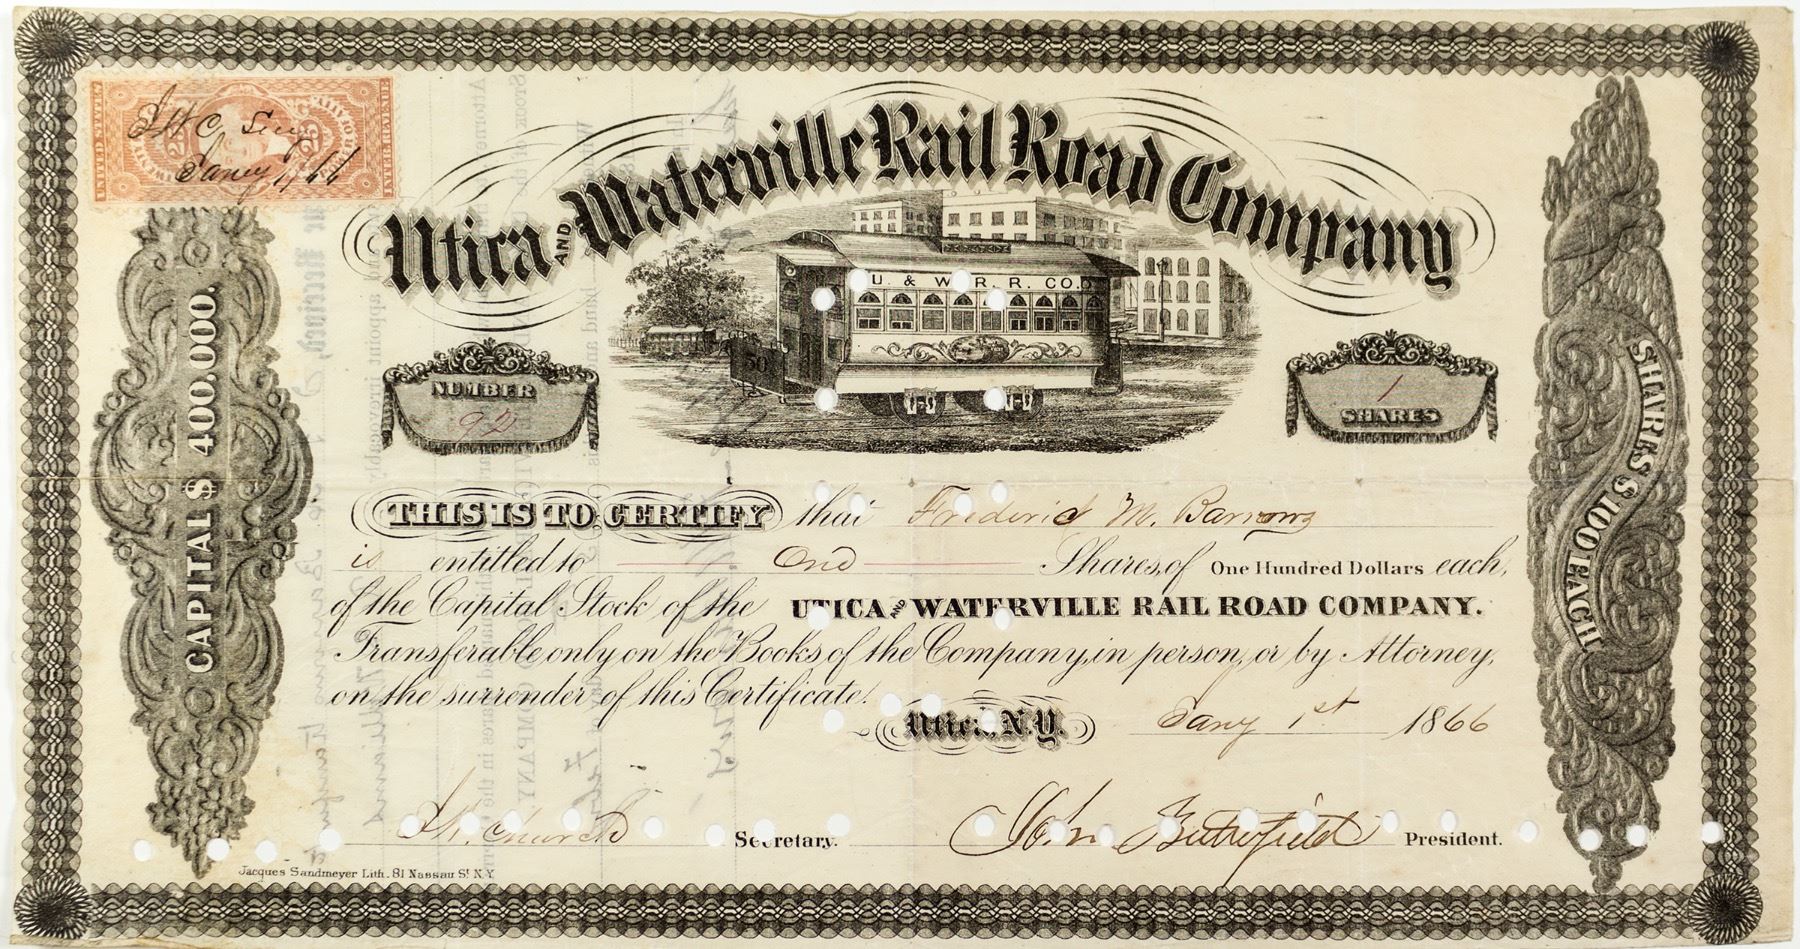 UNITED STATES
INTER. REVENUE
25
25
J.W.C. Secy
Jany 1/66
Utica AND Waterville Rail Road Company
U & W. R. R. CO.
50
NUMBER
92
1
SHARES
CAPITAL $ 400.000.
SHARES $100 EACH
THIS IS TO CERTIFY that Frederic M. Barrows
is entitled to One Shares, of One Hundred Dollars each,
of the Capital Stock of the UTICA AND WATERVILLE RAIL ROAD COMPANY.
Transferable only on the Books of the Company, in person, or by Attorney,
on the surrender of this Certificate.
Utica, N.Y. Jany 1st 1866
Church Secretary. John Butterfield President.
Jacques Sandmeyer Lith. 81 Nassau St. N.Y.